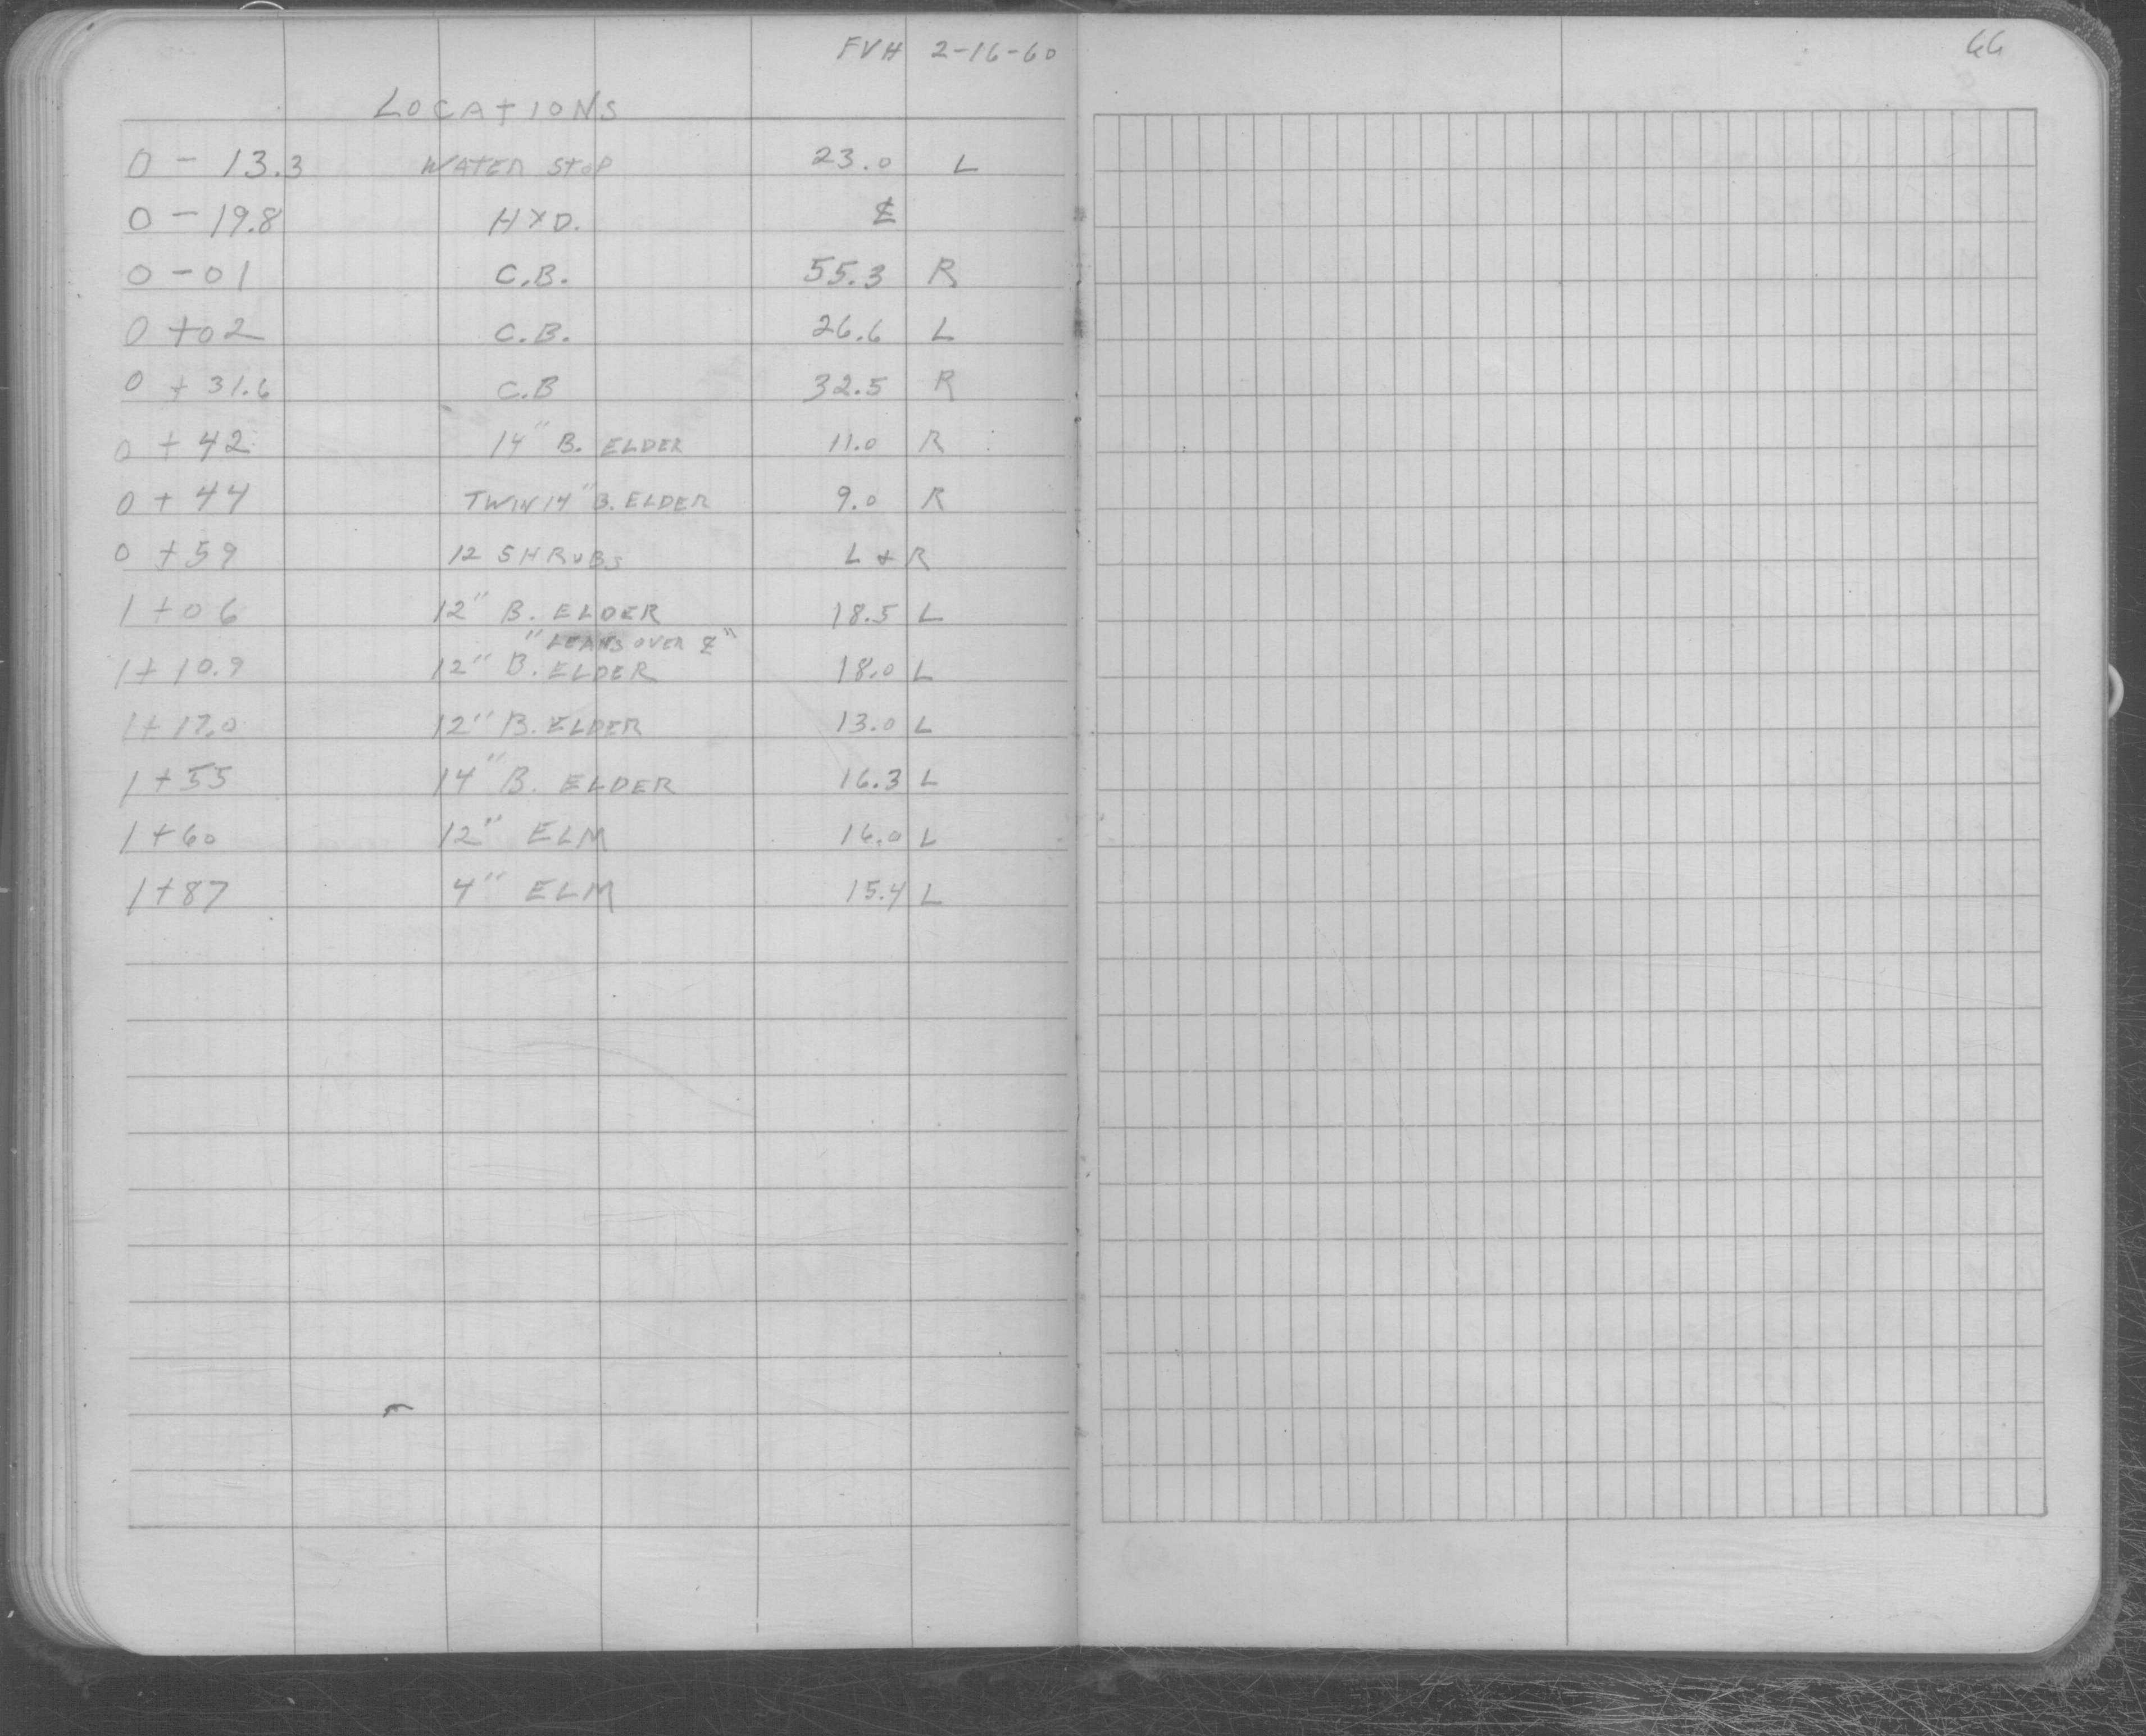 FVH 2-16-60
66
LOCATIONS
0 - 13.3 WATER STOP 23.0 L
0 - 19.8 HYD. ℄
0 - 01 C.B. 55.3 R
0 + 02 C.B. 26.6 L
0 + 31.6 C.B 32.5 R
0 + 42 14" B. ELDER 11.0 R
0 + 44 TWIN 14" B. ELDER 9.0 R
0 + 59 12 SHRUBS L & R
1 + 06 12" B. ELDER 18.5 L
"LEANS OVER ℄"
1 + 10.9 12" B. ELDER 18.0 L
1 + 17.0 12" B. ELDER 13.0 L
1 + 55 14" B. ELDER 16.3 L
1 + 60 12" ELM 16.0 L
1 + 87 4" ELM 15.4 L